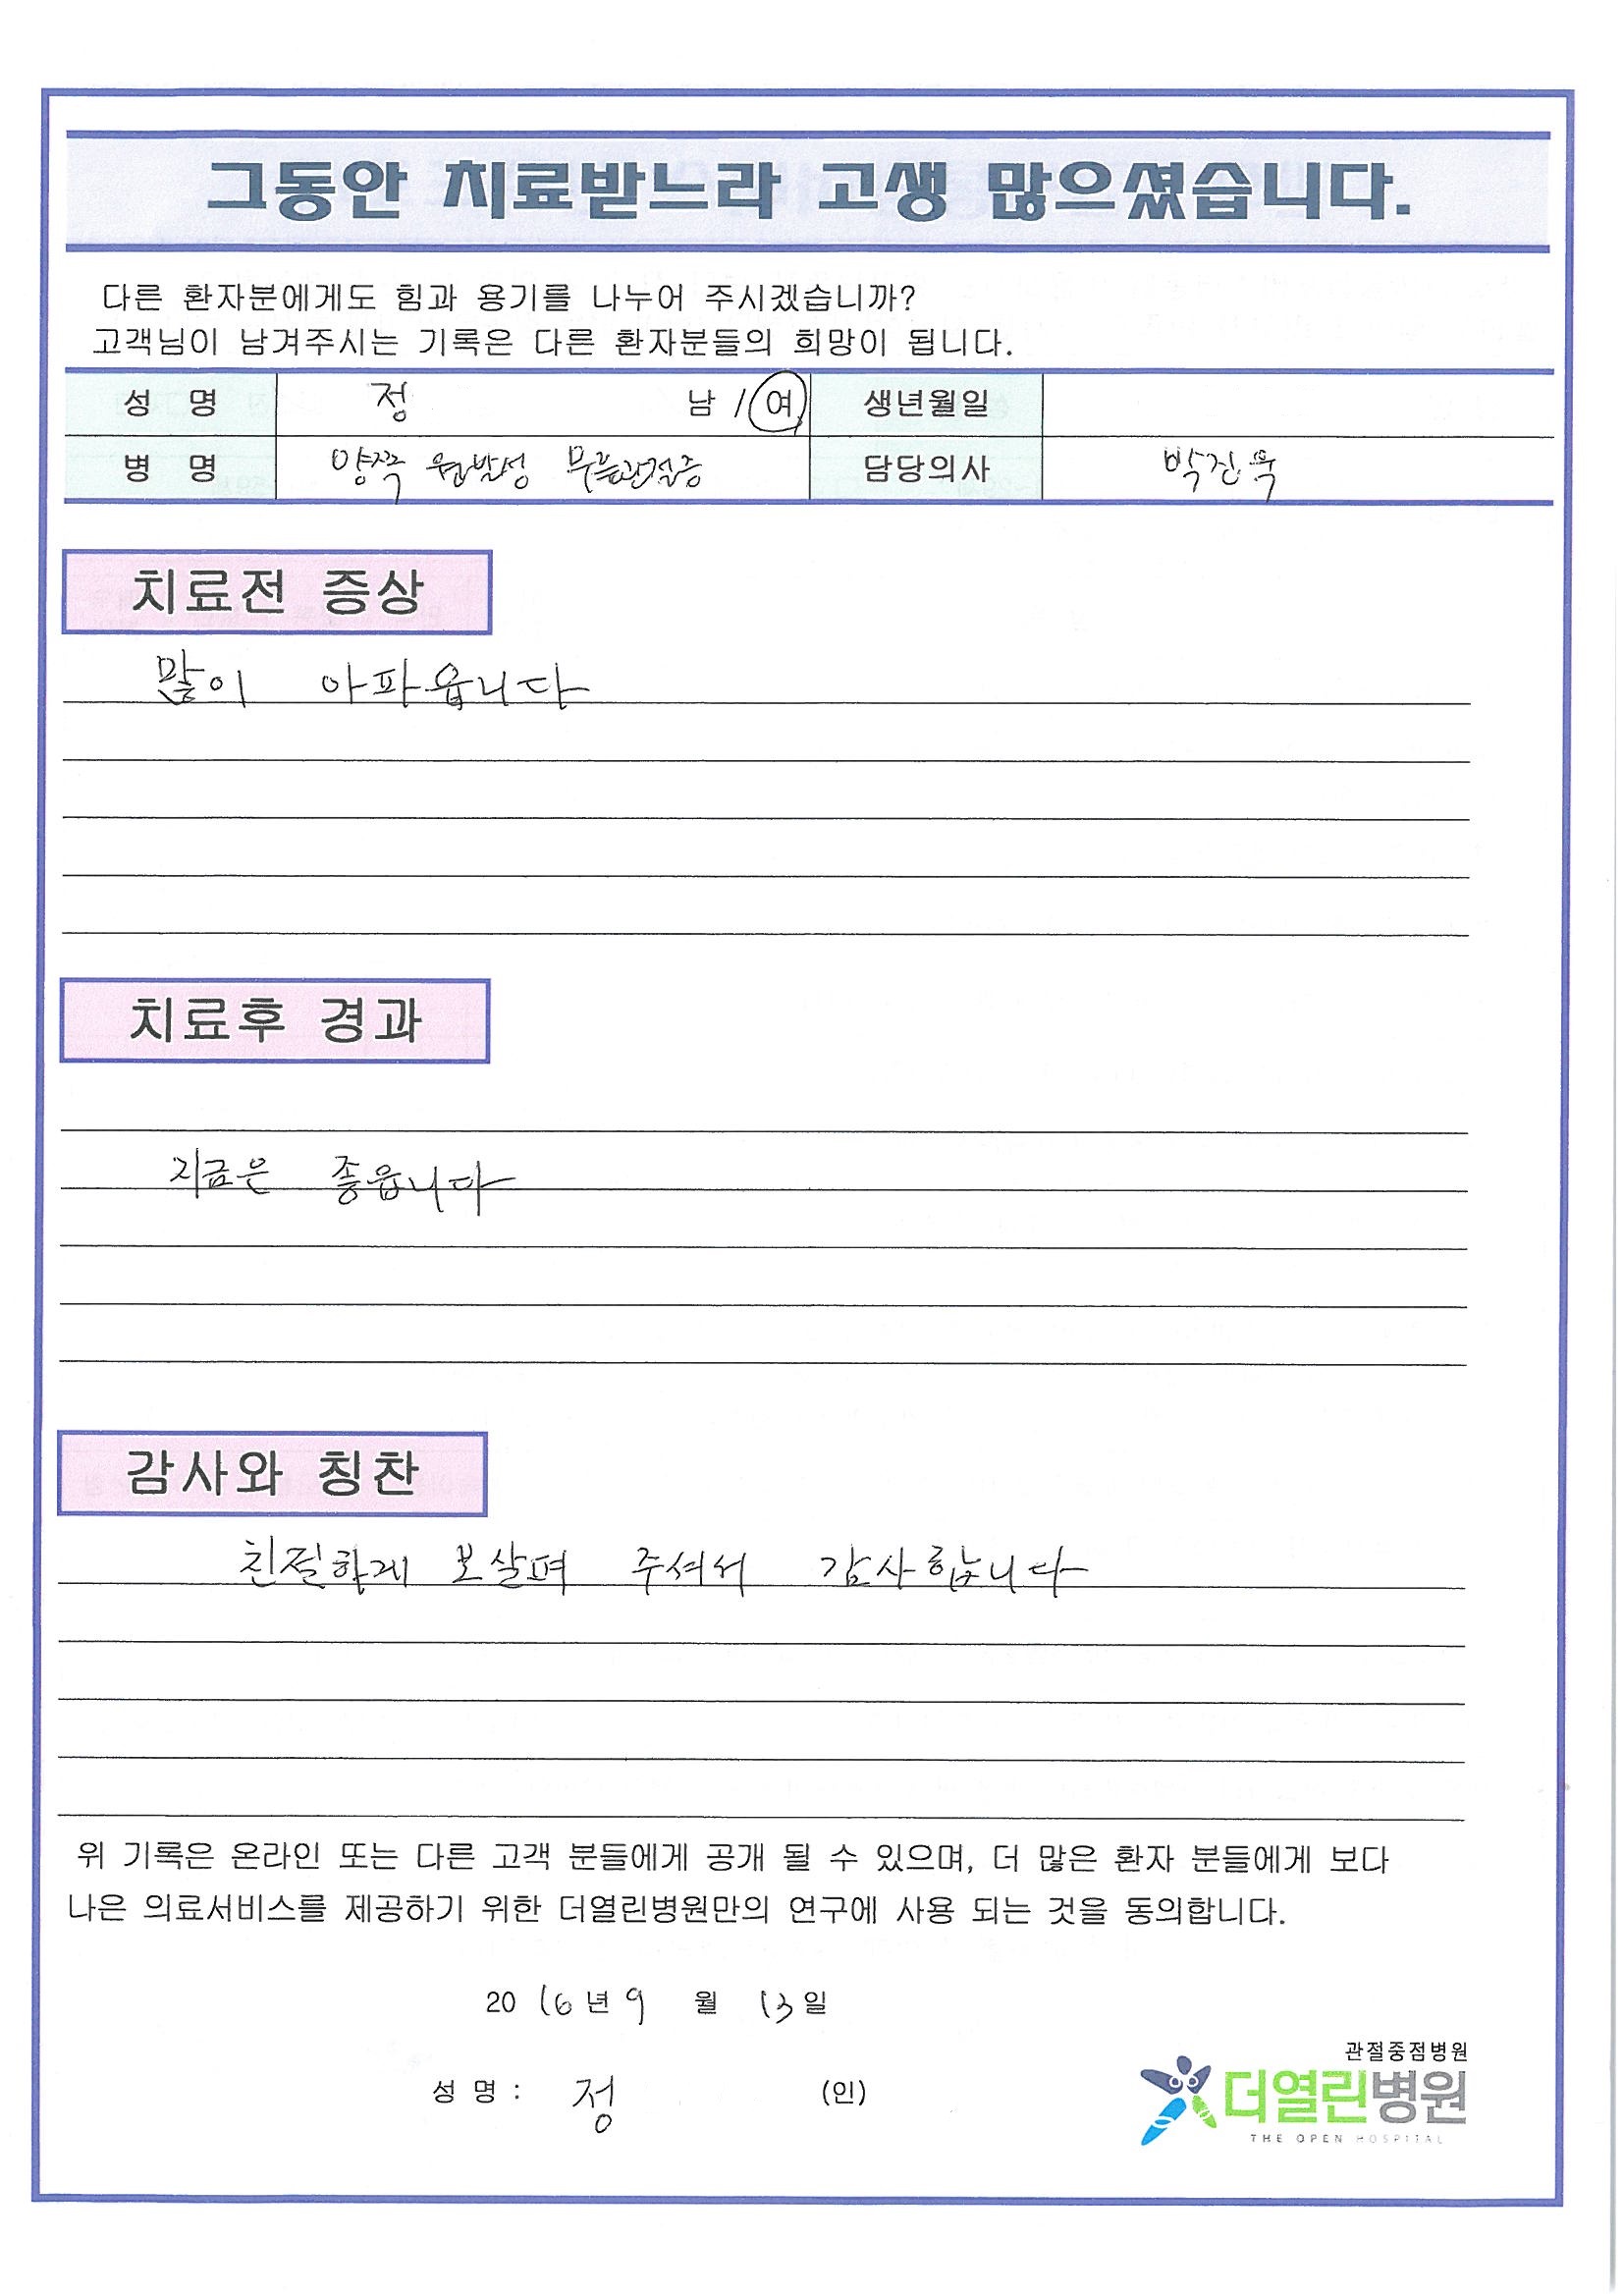 그동안 치료받느라 고생 많으셨습니다.
다른 환자분에게도 힘과 용기를 나누어 주시겠습니까?
고객님이 남겨주시는 기록은 다른 환자분들의 희망이 됩니다.
성 명 정 남 / 여 생년월일
병 명 양쪽 원발성 무릎관절증 담당의사 박진욱
치료전 증상
많이 아파읍니다
치료후 경과
지금은 좋읍니다
감사와 칭찬
친절하게 보살펴 주셔서 감사합니다
위 기록은 온라인 또는 다른 고객 분들에게 공개 될 수 있으며, 더 많은 환자 분들에게 보다
나은 의료서비스를 제공하기 위한 더열린병원만의 연구에 사용 되는 것을 동의합니다.
2016년 9 월 13일
성 명 : 정 (인)
관절중점병원
더열린병원
THE OPEN HOSPITAL